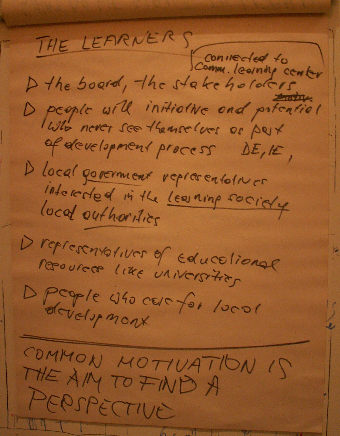 THE LEARNERS
connected to
comm. learning center
▷ the board, the stakeholders
▷ people with initiative and potential
who never see themselves as part
of development process DE, IE,
▷ local government representatives
interested in the learning society
local authorities
▷ representatives of educational
resources like universities
▷ people who care for local
development
COMMON MOTIVATION IS
THE AIM TO FIND A
PERSPECTIVE